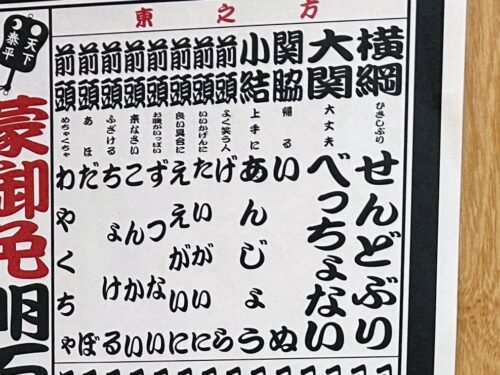 東之方
横綱 ひさしぶり せんどぶり
大関 大丈夫 べっちょない
関脇 帰る いぬ
小結 上手に あんじょう
前頭 よく笑う人 げら
前頭 いいかげんに たいがいに
前頭 良い具合に ええがいに
前頭 お腹がいっぱい ずつない
前頭 来なさい こんかい
前頭 ふざける ちょける
前頭 あほ だぼ
前頭 めちゃくちゃ わやくちゃ
天下
泰平
蒙御免
明